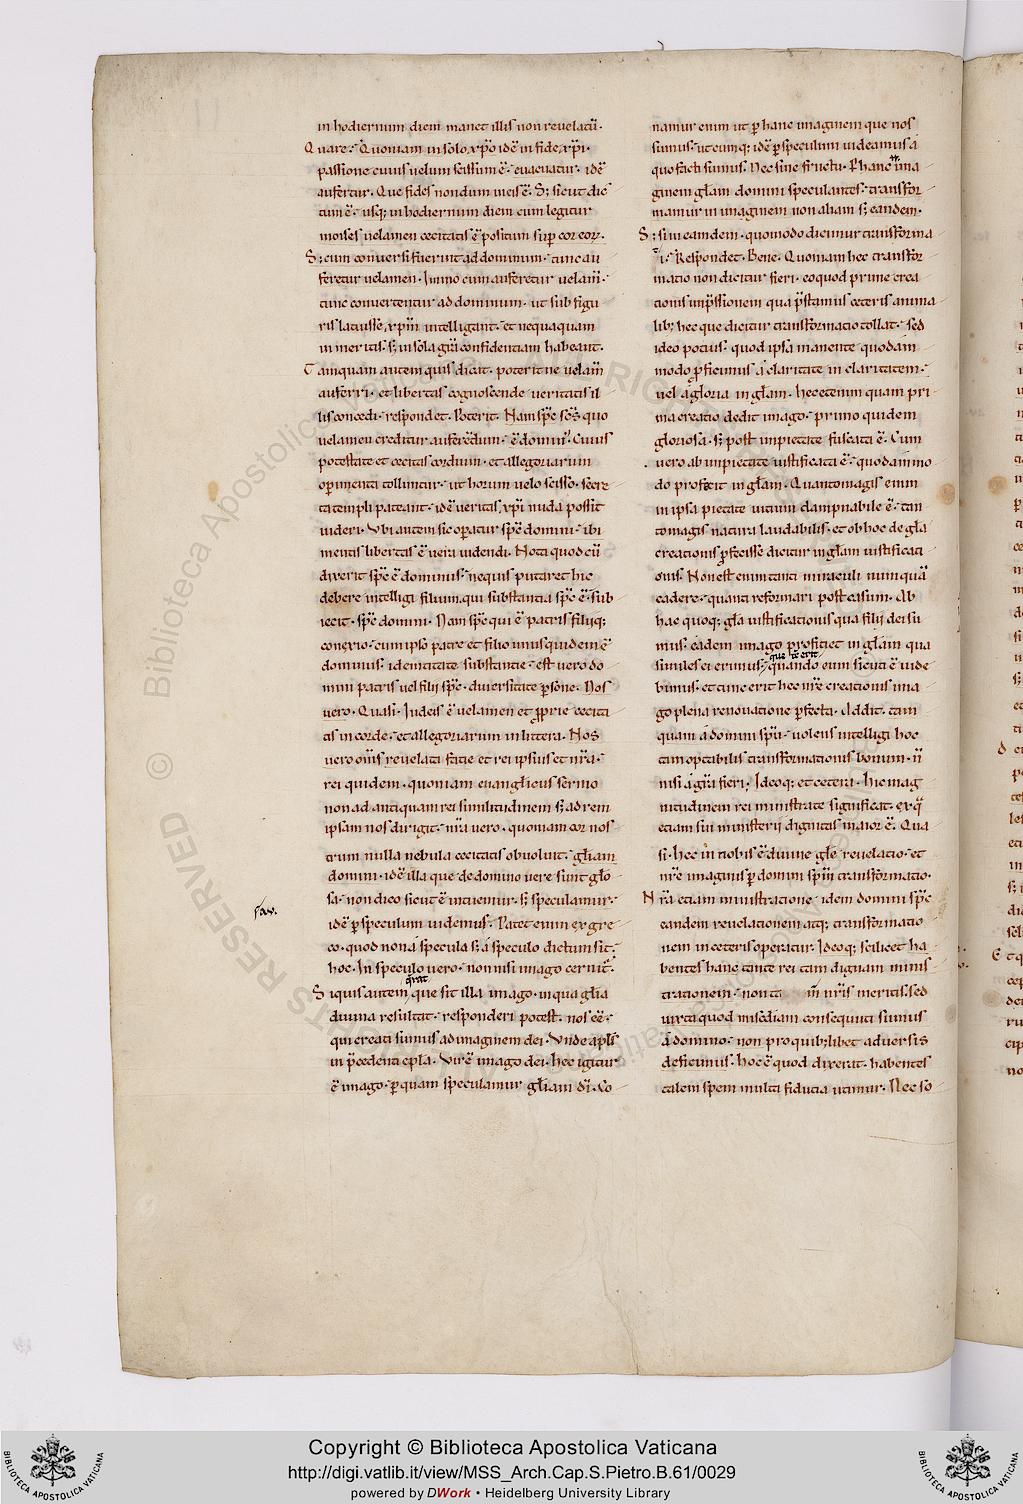 in hodiernum diem manet illis non revelatū.
Quare? Quoniam in solo xp̄o idē in fide xp̄i.
passione cuius velum scissum ē. evacuatur. idē
aufertur. Que fides nondum in eis ē. S; sicut dic
tum ē. usq; in hodiernum diem cum legitur
moises velamen cecitatis ē positum sup̄ cor eoꝝ.
S; cum conversi fuerint ad dominum. tunc au
feretur velamen. Immo cum auferetur velam̄.
tunc convertentur ad dominum. ut sub figu
ris latuisse xp̄m intelligant. et nequaquam
in meritis. s; in sola grā confidentiam habeant.
Tamquam autem quis dicat. poterit ne velam̄
auferri. et libertas cognoscende veritatis il
lis concedi. respondet. Poterit. Nam sp̄c sc̄s quo
velamen creditur auferēdum. ē domini. Cuius
potestate et cecitas cordum. et allegoriarum
op̄imenta tolluntur. ut horum velo scisso. secre
ta templi pateant. idē veritas xp̄i nuda possit
videri. Ubi autem sic op̄atur sp̄c domini. ibi
mentis libertas ē vera videndi. Nota quod cū
dixerit sp̄c ē dominus. nequis putaret hic
debere intelligi filium. qui substantia sp̄c ē. sub
iecit. sp̄c domini. Nam sp̄c qui ē patris filiiq;
cum ipso patre et filio unus quidem ē
dominus. idemtitate substantie. est vero do
mini patris vel filii sp̄c. diversitate p̄sone. Nos
vero. Quasi. Iudeis ē velamen et ꝓprie cecita
tis in corde. et allegoriarum in littera. Nos
vero om̄s revelata facie et rei ipsius et nr̄a.
rei quidem. quoniam euangelicus sermo
non ad antiquam rei similitudinem s; ad rem
ipsam nos dirigit. nr̄a vero. quoniam cor nos
trum nulla nebula cecitatis obvoluit. gl̄iam
domini. idē illa que de domino vere sunt glo
sa. non dico sicut ē intuemur. s; speculamur.
idē p̄ speculum videmus. Patet enim ex gre
co. quod non á specula s; á speculo dictum sit.
hoc. In speculo vero. non nisi imago cernit̄.
Siquis autem q̄rat que sit illa imago. in qua gl̄ia
divina resultat. responderi potest. nos eē.
qui creati sumus ad imaginem dei. Unde apl̄s
in p̄cedenti epl̄a. Vir ē imago dei. hec igitur
ē imago. p̄ quam speculamur gl̄iam dī. Co
namur enim ut p̄ hanc imaginem que nos
sumus. utcumq; idē p̄ speculum videamus á
quo facti sumus. Nec sine fructu. P̄ hanc enim ima
ginem gl̄am domini speculantes. transfor
mamur in imaginem non aliam s; eandem.
S; si in eandem. quomodo dicimur transforma
ri? Respondet. Bene. Quoniam hec transfor
matio non dicitur fieri. eo quod prime crea
tionis imp̄ssionem qua p̄stamus ceteris anima
lib; hec que dicitur transformatio tollat. sed
ideo potius. quod ipsa manente quodam
modo p̄ficimus á claritate in claritatem.
vel á gloria in gl̄am. hec etenim quam pri
ma creatio dedit imago. primo quidem
gloriosa. s; post impietate fuscata ē. Cum
vero ab impietate iustificata ē. quodammo
do proficit in gl̄am. Quanto magis enim
in ipsa pietate vitium dampnabile ē. tan
to magis natura laudabilis. et ob hoc de gl̄a
creationis p̄fecisse dicitur in gl̄am iustificati
onis. Non est enim tanti miraculi numquā
cadere. quanti reformari post casum. Ab
hac quoq; gl̄a iustificationis qua filii dei su
mus. eadem imago proficiet in gl̄am qua
similes ei erimus. que tc̄ erit quando eum sicuti ē vide
bimus. et tunc erit hec nr̄e creationis ima
go plena renovatione p̄fecta. Addit. tam
quam á domini sp̄u. volens intelligi hoc
tam optabilis transformationis bonum. n̄
nisi á gr̄a fieri; Ideoq; et cetera. Hic mag
nitudinem rei ministrate significat. ex q̄
etiam sui ministerii dignitas maior ē. Qua
si. hec in nobis ē divine gl̄e revelatio. et
nr̄e imaginis p̄ domini sp̄m transformatio.
Nr̄a etiam ministratione. idem domini sp̄c
eandem revelationem atq; transformatio
nem in ceteris operatur. Ideoq; scilicet ha
bentes hanc tante rei tam dignam minis
trationem. non nr̄is meritis. sed
iuxta quod misc̄diam consequuti sumus
á domino. non pro quiblibet adversis
deficimus. hoc ē quod dixerat. habentes
talem spem multa fiducia utimur. Nec so
Copyright © Biblioteca Apostolica Vaticana
http://digi.vatlib.it/view/MSS_Arch.Cap.S.Pietro.B.61/0029
powered by DWork • Heidelberg University Library